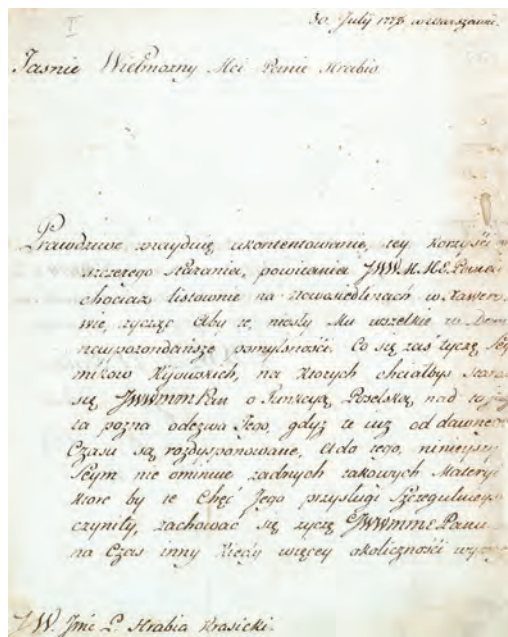 30. July 1778 w Warszawie.
Jasnie Wielmozny Mci Panie Hrabio.
Prawdziwe znayduię ukontentowanie, tey korzyści
szczerego starania, powitania JWW.M.M.E. Pana
chociaz listownie na nowosiedlinach w
wie, zycząc Aby te, niosły Mu wszelkie w Dom
naypożondańsze pomyslności. Co się zaś tyczę Sey
mikow Kijowskich, na ktorych chciałbys stara
się JWWmm Pan o Funkcyą Poselską, nad to
ta pozna odezwa Jego, gdyz te iuz od dawnego
Czasu są rozdysponowane, Ado tego, ninieyszy
Seym nie ominuie zadnych takowych Materyi
ktore by te Chęć Jego przysługi Szczegulniey
czyniły, zachować się zyczę JWWmmE Panu
na Czas inny kiedy więcey okoliczności
JW. Jmć P. Hrabia Krasicki.